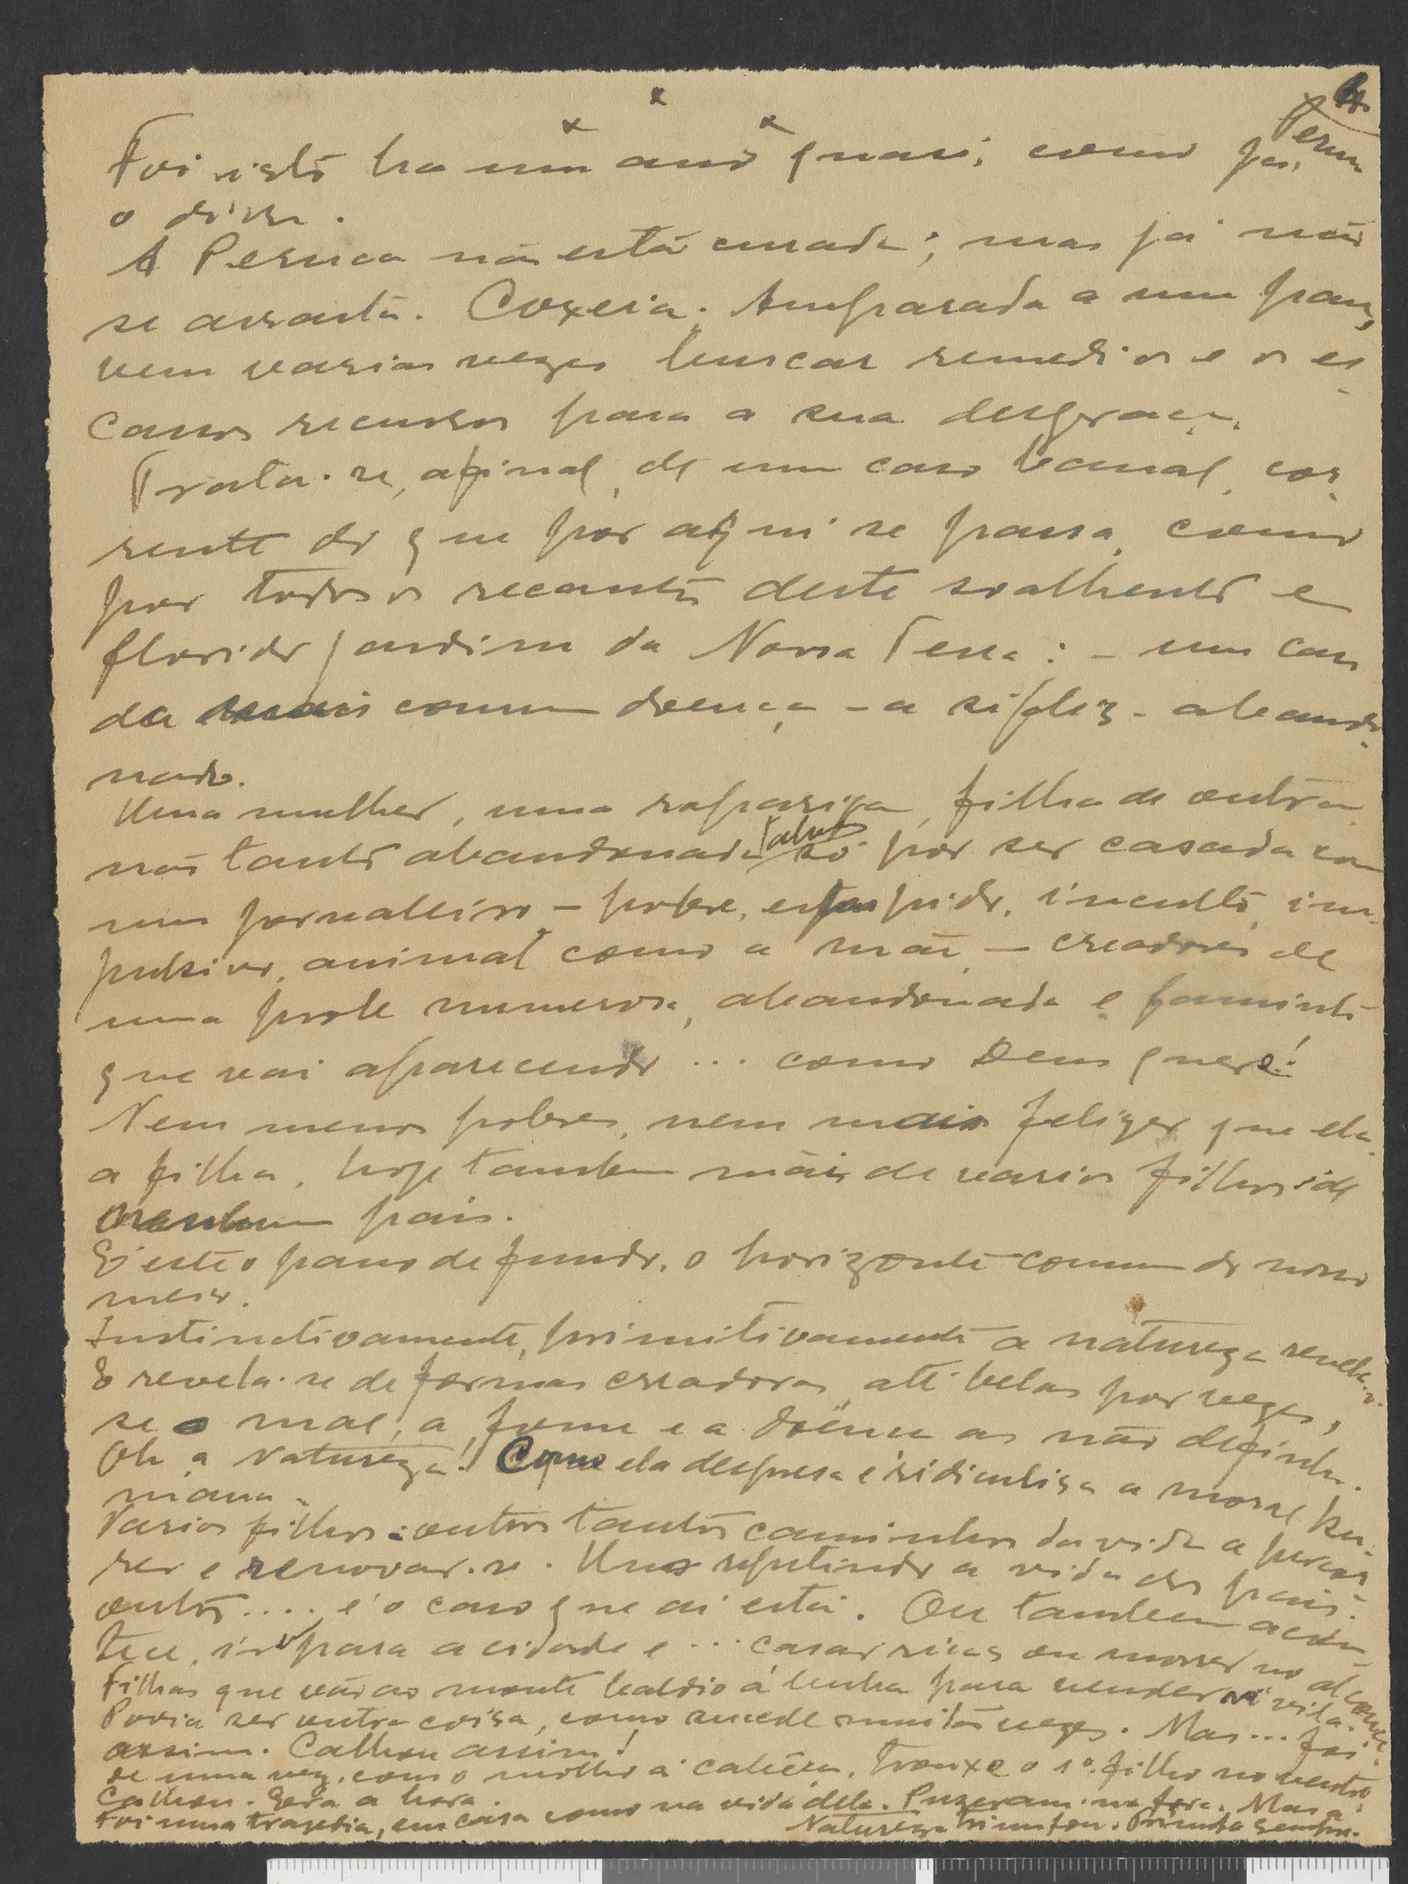 4.
x
x x
Foi isto ha um ano quasi, como já
o disse.
A Peruca não está curada; mas já não
se arrasta. Coxeia. Amparada a um pau,
vem varias vezes buscar remedios e os es-
cassos recursos para a sua desgraça.
Trata-se, afinal, de um caso banal, cor-
rente do que por aqui se passa, como
por todos os recantos deste soalhento e
florido jardim da Nossa Terra: - um caso
da mais comum doença - a sifilis - abando-
nado.
Uma mulher, uma rapariga, filha de outra,
não tanto abandonada talvez só por ser casada com
um jornaleiro - pobre, estupido, inculto, im-
pulsivo, animal como a mãi, - creadores de
uma prole numerosa, abandonada e faminta
que vai aparecendo ... como Deus quere!
Nem menos pobres, nem mais felizes que ela
a filha, hoje tambem mãi de varios filhos de
nenhum pai.
É este o pano de fundo, o horizonte comum do nosso
meio.
Instinctivamente, primitivamente a natureza revela-se.
E revela-se de formas creadoras, até belas por vezes,
se o mal, a fome e a doença as não definha.
Oh, a Natureza! Como ela despresa e ridiculisa a moral hu-
mana.
Varios filhos: outros tantos caminhos da vida a percor-
rer e renovar-se. Uns repetindo a vida dos pais.
outros .... é o caso que aí está. Ou tambem acon-
tece, ir para a cidade e ... casar ricas ou morrer no alcouce.
Filhas que vão ao monte baldio á lenha para vender na vila.
Podia ser outra coisa, como sucede muitas vezes. Mas ... foi
assim. Calhou assim!
De uma vez, com o molho á cabeça, trouxe o 1º filho no ventre.
Calhou. Era a hora.
Foi uma tragedia, em casa como na vida dela. Puzeram-na fora. Mas a
Natureza triunfou. Triunfa sempre.